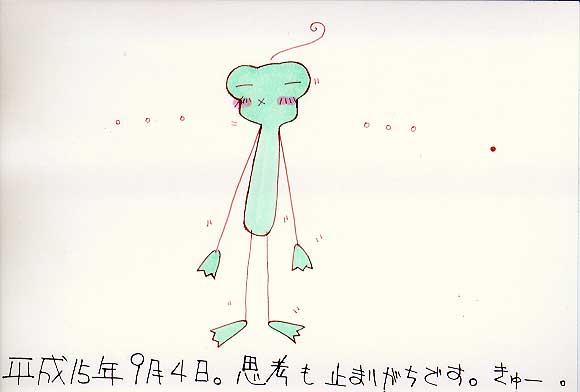 平成15年9月4日。思考も止まりがちです。きゅー。